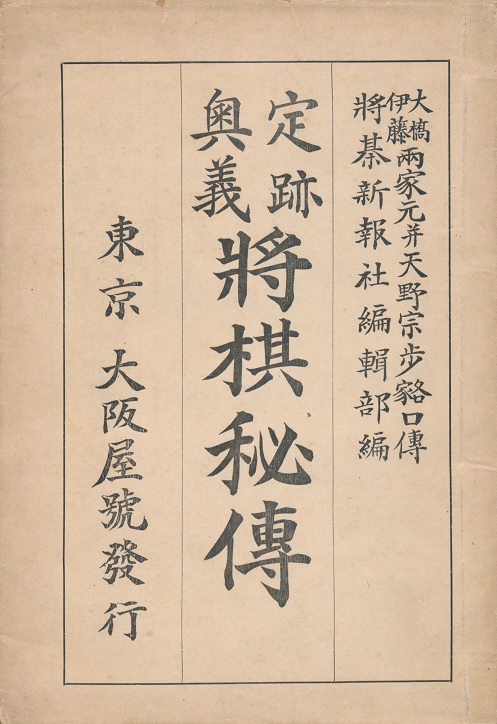 大槗
伊藤
兩家元并天野宗步口傳
將棊新報社編輯部編
定跡
奥義
將棋秘傳
東京 大阪屋號發行